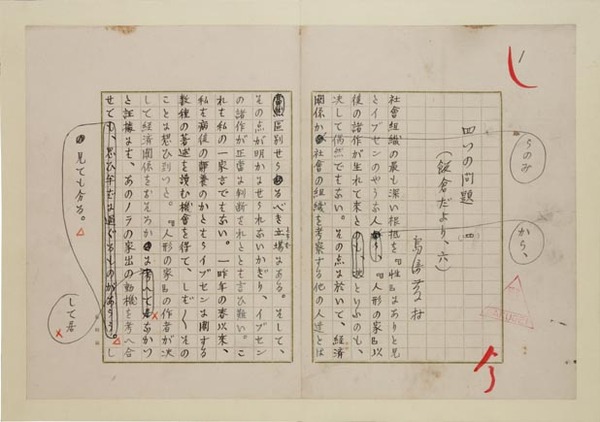 四つの問題
(鎌倉だより、六)
島崎藤村
社會組織の最も深い根柢を『性』にありと見
たイブセンのやうな人から、『人形の家』以
後の諸作が生れて來たといふのも、
決して偶然でもない。その点に於いて、經濟
關係から社會の組織を考察する他の人達とは
のみ
から、
當然區別せらるべき立場にある。そして、
その点が明かにせられないかぎり、イブセン
の諸作が正當に判斷されたとも言ひ難い。こ
れも私の一家言でもない。一昨年の春以來、
私も病後の靜養のかたはらイブセンに關する
數種の著述を讀む機會を得て、しば〴〵その
ことに想ひ到つた。『人形の家』の作者が決
して經濟關係をおろそかに考へて居なかつ
た証據にも、あのノラの家出の動機を考へ合
せても、思ひ半ばに過ぐるものがあらう。し
見ても分る。
して居